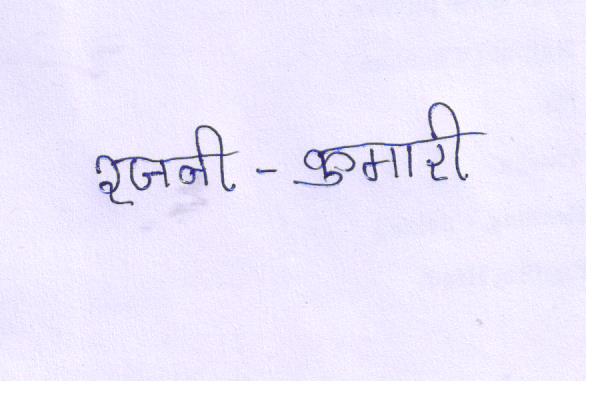 रजनी - कुमारी